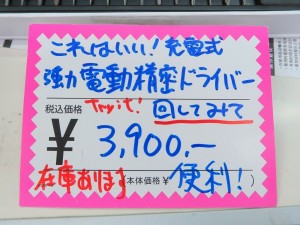 これはいい！充電式
強力電動精密ドライバー
税込価格 Try it! 回してみて
¥ 3,900,-
在庫あります (本体価格¥ )
便利！